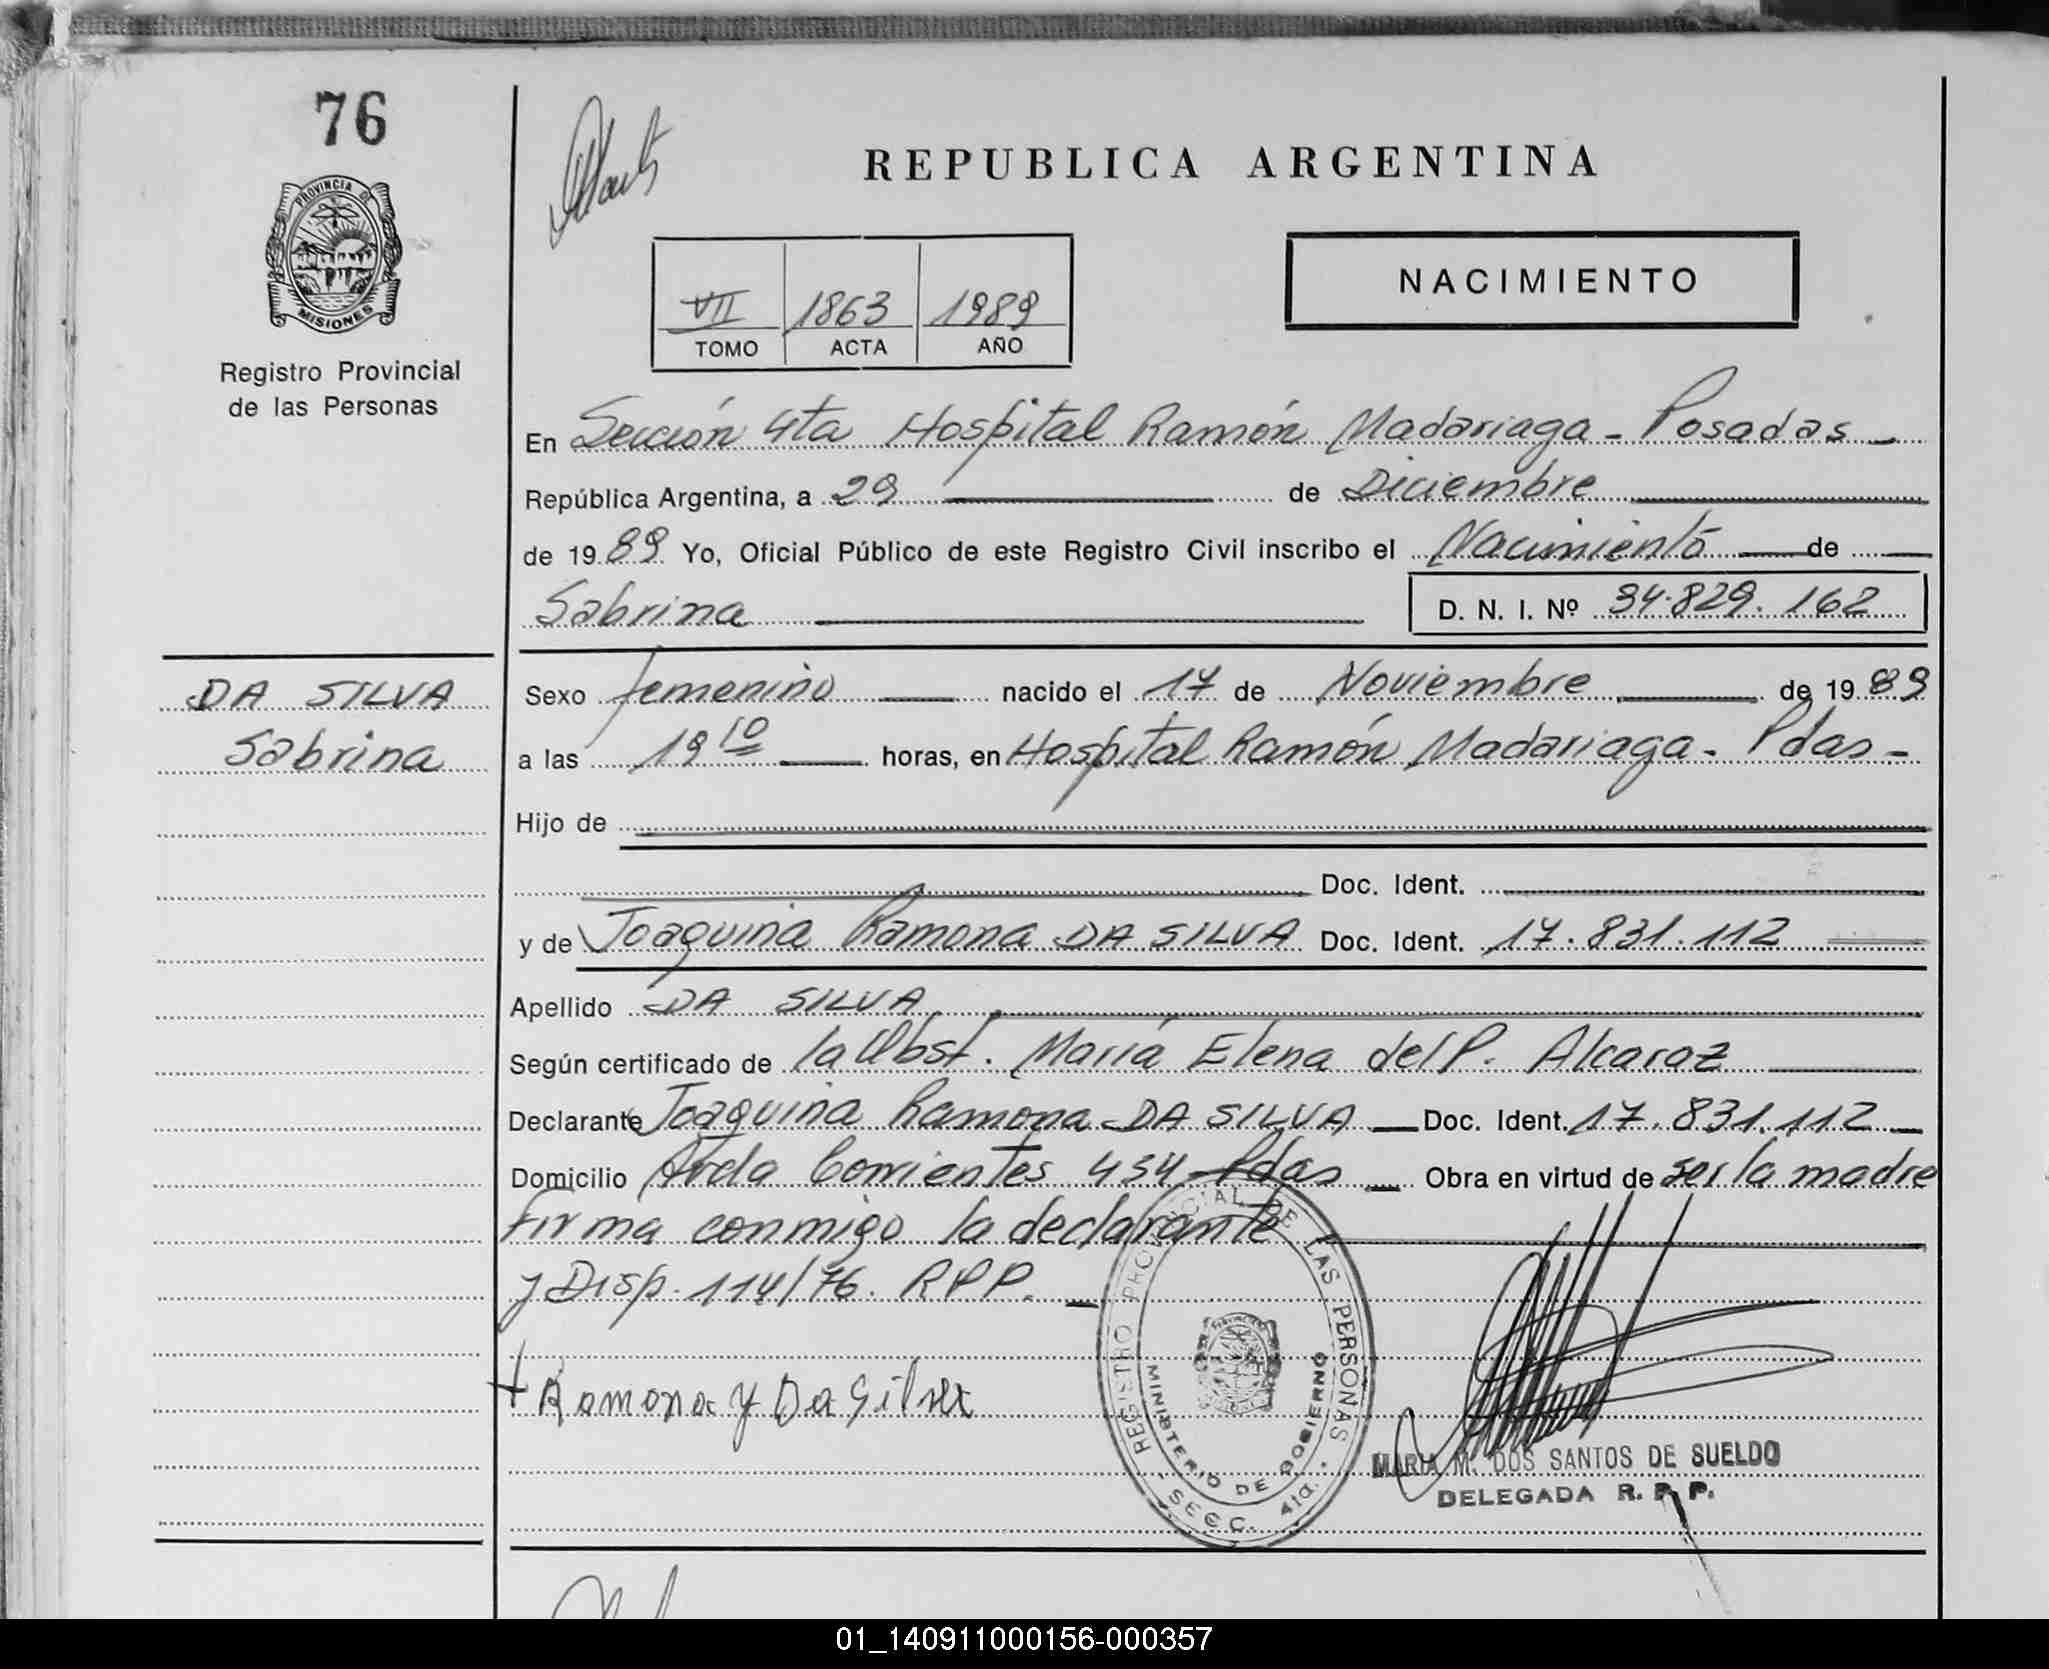 76
PROVINCIA DE
MISIONES
Registro Provincial
de las Personas
REPUBLICA ARGENTINA
NACIMIENTO
VII 1863 1989
TOMO ACTA AÑO
En Sección 4ta Hospital Ramón Madariaga - Posadas -
República Argentina, a 29 de Diciembre
de 1989 Yo, Oficial Público de este Registro Civil inscribo el Nacimiento de
Sabrina D. N. I. Nº 34.829.162
DA SILVA
Sabrina
Sexo femenino nacido el 17 de Noviembre de 1989
a las 19 10 horas, en Hospital Ramón Madariaga - Pdas -
Hijo de
Doc. Ident.
y de Joaquina Ramona DA SILVA Doc. Ident. 17.831.112
Apellido DA SILVA
Según certificado de la Obst. María Elena del P. Alcaraz
Declarante Joaquina Ramona DA SILVA Doc. Ident. 17.831.112
Domicilio Avda Corrientes 434 - Pdas Obra en virtud de ser la madre
firma conmigo la declarante
y Disp. 114/76. RPP.
Ramona y Da Silva
REGISTRO PROVINCIAL DE LAS PERSONAS
MINISTERIO DE GOBIERNO
SECC. 4ta.
MARIA M. DOS SANTOS DE SUELDO
DELEGADA R. P. P.
01_140911000156-000357